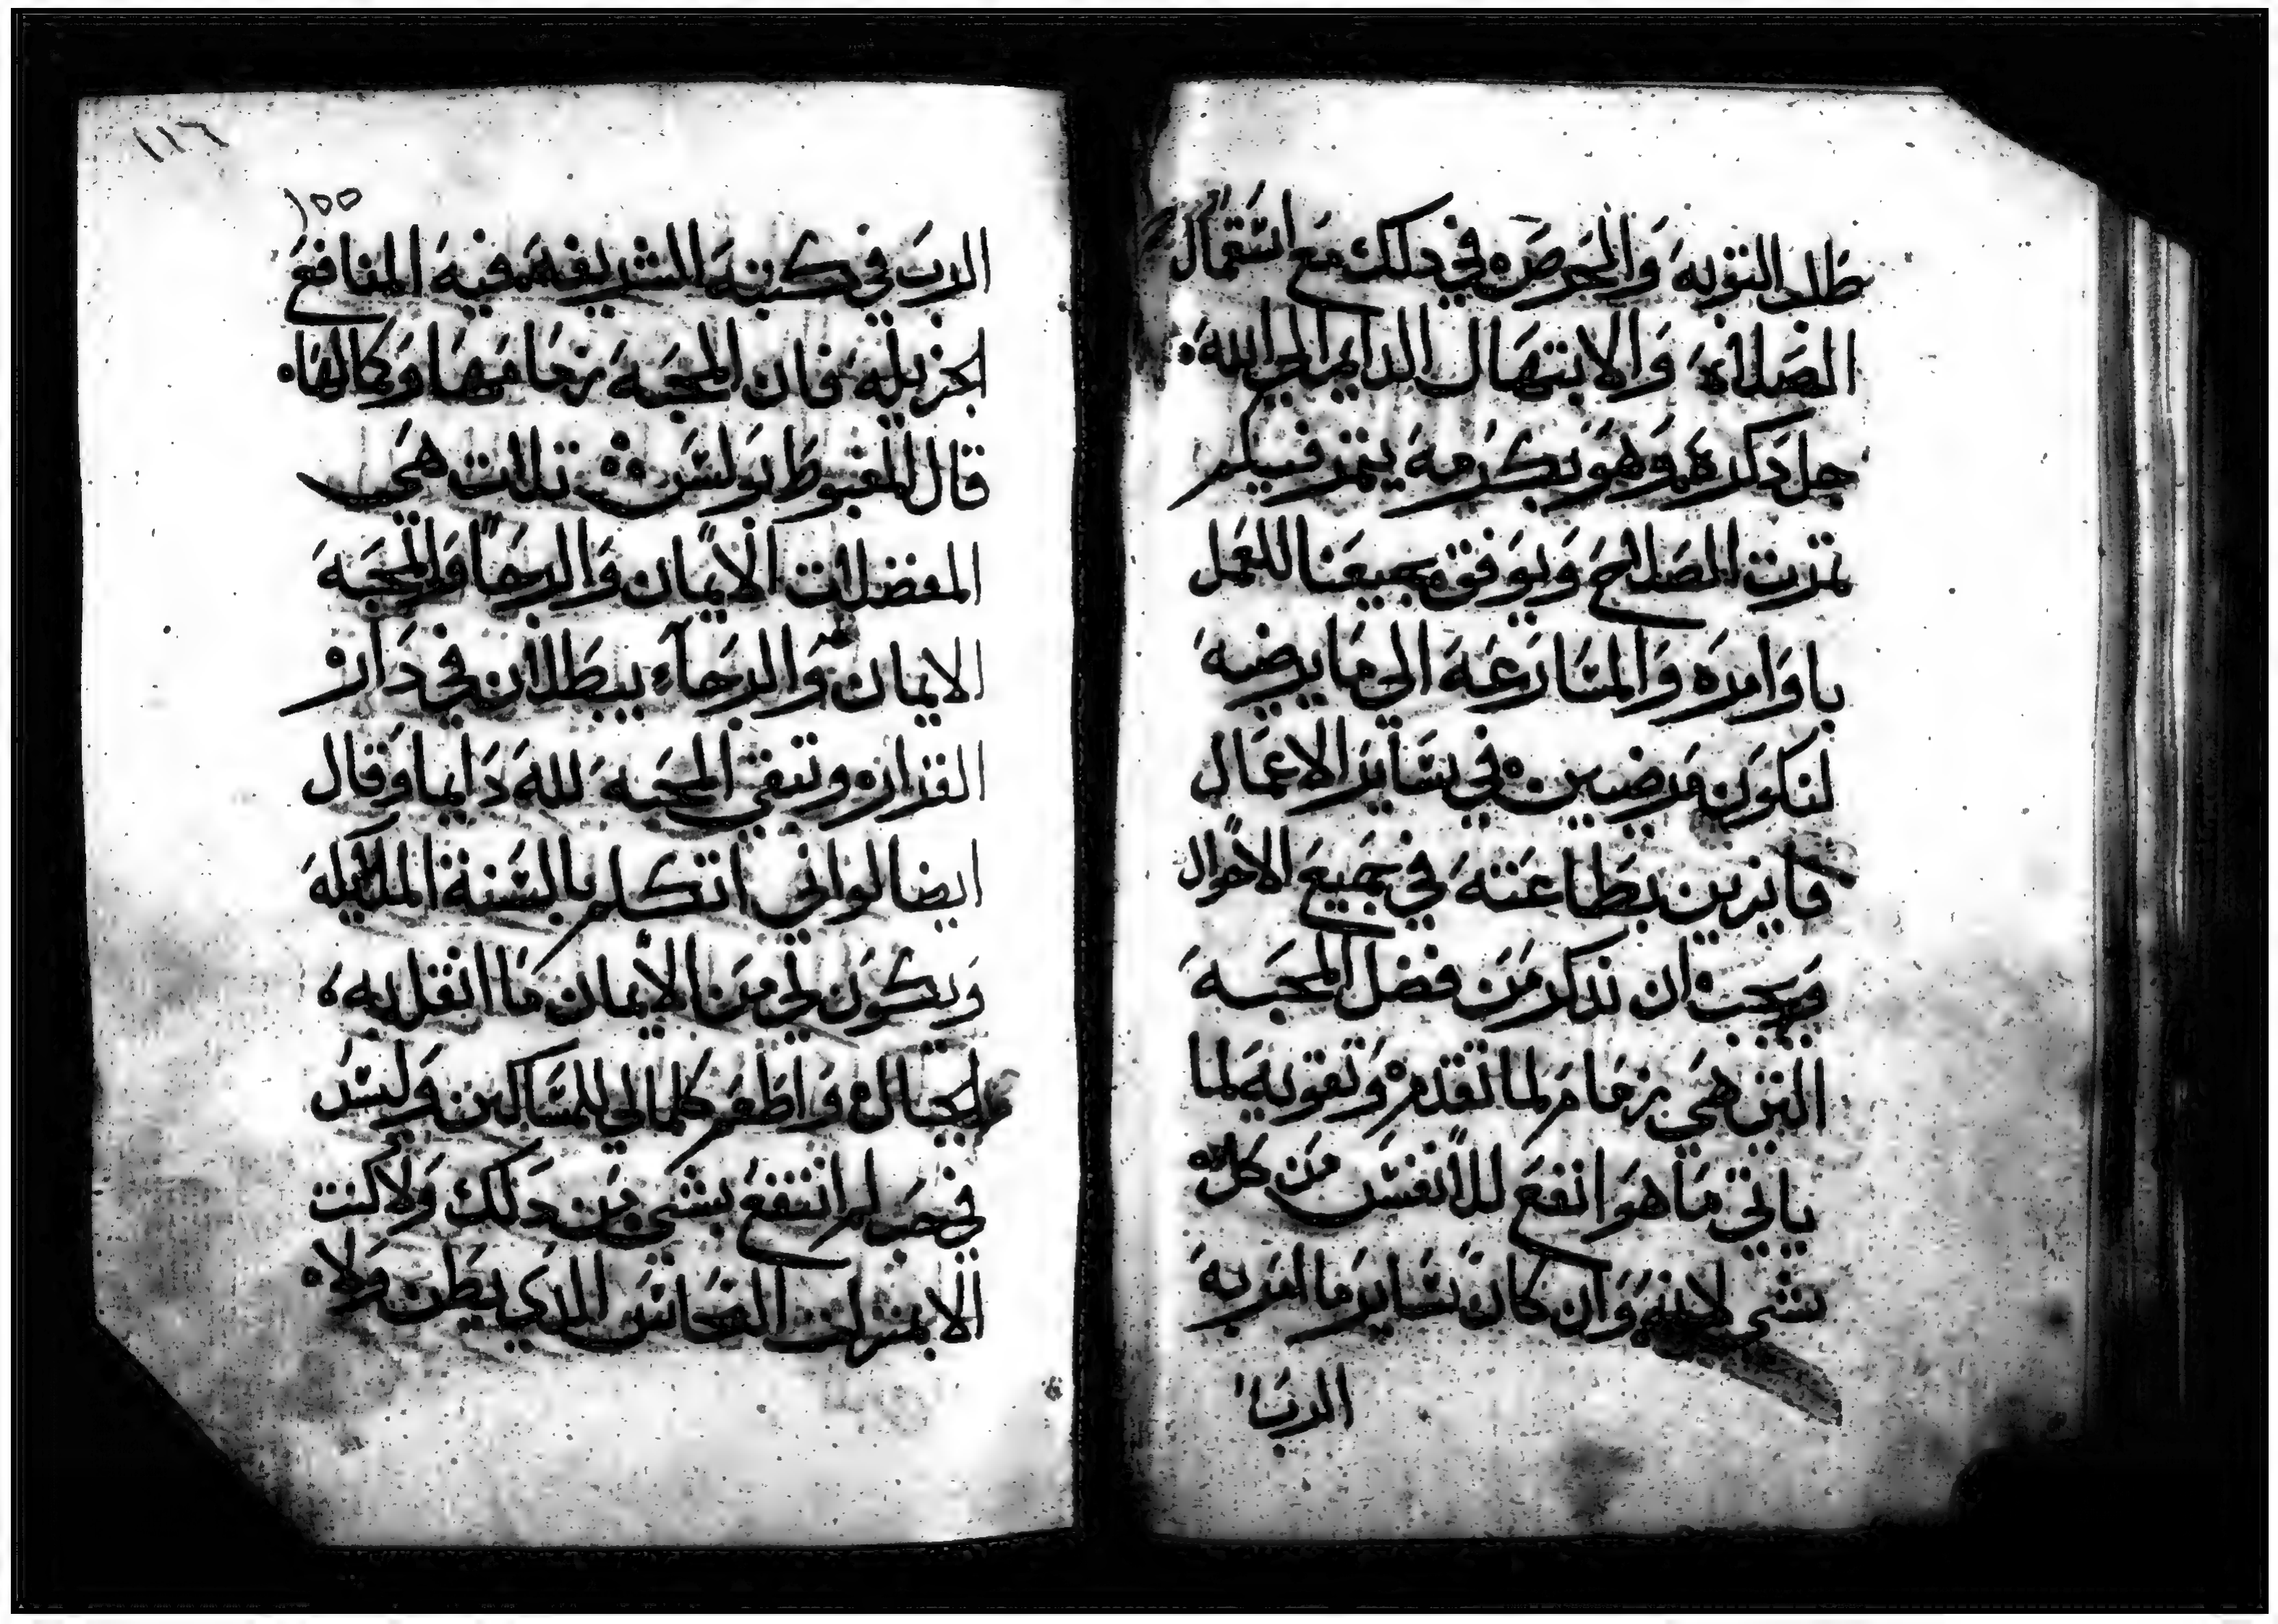 طلب التوبه والحرص في دلك مع استعمال
الصلاه والابتهال الدايم الى الله
جل دكره وهو بكرمه يتمر فيكم
تمرت الصلاح ويوفق جميعنا للعمل
باوامره والمسارعه الى ما يرضيه
لنكون مرضيين في ساير الاعمال
فايزين بطاعته في جميع الاحوال
ويجب ان ندكر من فضل المحبه
التي هي زمام لما تقدم وتقويه لما
ياتي ما هو انفع للانفس من كل
شي لانه وان كان ساير ما امر به
الرب
١١٦
١٥٥
الرب في كتبه الشريفه فيه المنافع
الجزيله فان المحبه زمامها وكمالها
قال المغبوط بولس تلات هي
المفضلات الايمان والرجا والمحبه
الايمان والرجاء يبطلان في دار
القرار وتبقى المحبه لله دايما وقال
ايضا لو اني اتكلم بالسنة الملايكه
ويكون لي من الايمان ما انقل به
الجبال واطعم كلما لي للمساكين وليس
في حب لم انتفع بشي من دلك ولا كنت
الا بمنزلت النحاس الدي يطن ولا